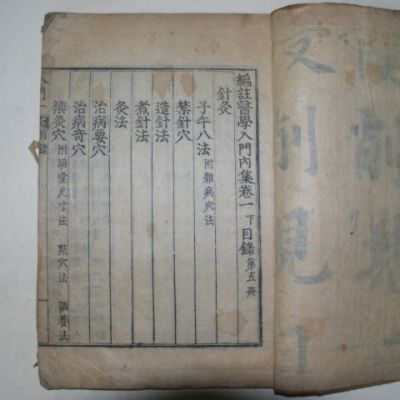 編註醫學入門內集卷一下目錄 第五冊
針灸
子午八法 附雜病穴法
禁針穴
造針法
煮針法
灸法
治病要穴
治病奇穴
禁灸穴 附明堂尺寸法 點穴法 調養法